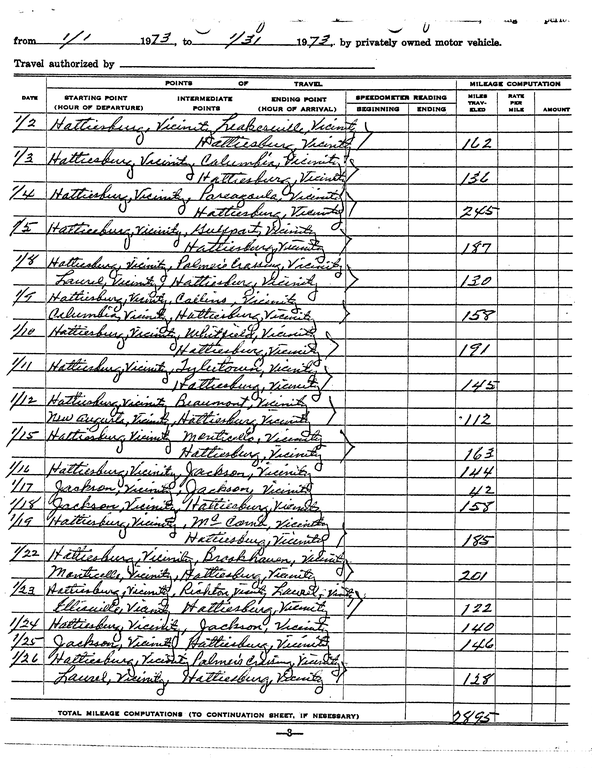 from 1/1 1973, to 1/31 1973, by privately owned motor vehicle.
Travel authorized by
POINTS OF TRAVEL MILEAGE COMPUTATION
DATE STARTING POINT (HOUR OF DEPARTURE) INTERMEDIATE POINTS ENDING POINT (HOUR OF ARRIVAL) SPEEDOMETER READING BEGINNING ENDING MILES TRAV- ELED RATE PER MILE AMOUNT
1/2 Hattiesburg, Vicinity, Leakesville, Vicinity
Hattiesburg, Vicinity 162
1/3 Hattiesburg Vicinity, Columbia, Vicinity,
Hattiesburg, Vicinity 136
1/4 Hattiesburg, Vicinity, Pascagoula, Vicinity
Hattiesburg, Vicinity 245
1/5 Hattiesburg, Vicinity, Gulfport, Vicinity
Hattiesburg, Vicinity 187
1/8 Hattiesburg, Vicinity, Palmers Crossing, Vicinity
Laurel, Vicinity, Hattiesburg, Vicinity 130
1/9 Hattiesburg, Vicinity, Collins, Vicinity
Columbia, Vicinity, Hattiesburg, Vicinity 158
1/10 Hattiesburg, Vicinity, Whitfield, Vicinity
Hattiesburg, Vicinity 191
1/11 Hattiesburg, Vicinity, Tylertown, Vicinity
Hattiesburg, Vicinity 145
1/12 Hattiesburg, Vicinity, Beaumont, Vicinity
New Augusta, Vicinity, Hattiesburg, Vicinity 112
1/15 Hattiesburg, Vicinity Monticello, Vicinity
Hattiesburg, Vicinity 163
1/16 Hattiesburg, Vicinity, Jackson, Vicinity 144
1/17 Jackson, Vicinity, Jackson, Vicinity 42
1/18 Jackson, Vicinity, Hattiesburg, Vicinity 158
1/19 Hattiesburg, Vicinity, McComb, Vicinity
Hattiesburg, Vicinity 185
1/22 Hattiesburg, Vicinity, Brookhaven, Vicinity
Monticello, Vicinity, Hattiesburg, Vicinity 201
1/23 Hattiesburg, Vicinity, Richton, Vicinity, Laurel, Vicinity
Ellisville, Vicinity Hattiesburg, Vicinity 122
1/24 Hattiesburg, Vicinity, Jackson, Vicinity 140
1/25 Jackson, Vicinity, Hattiesburg, Vicinity 146
1/26 Hattiesburg, Vicinity Palmers Crossing, Vicinity
Laurel, Vicinity, Hattiesburg, Vicinity 128
TOTAL MILEAGE COMPUTATIONS (TO CONTINUATION SHEET, IF NECESSARY) 2895
—3—